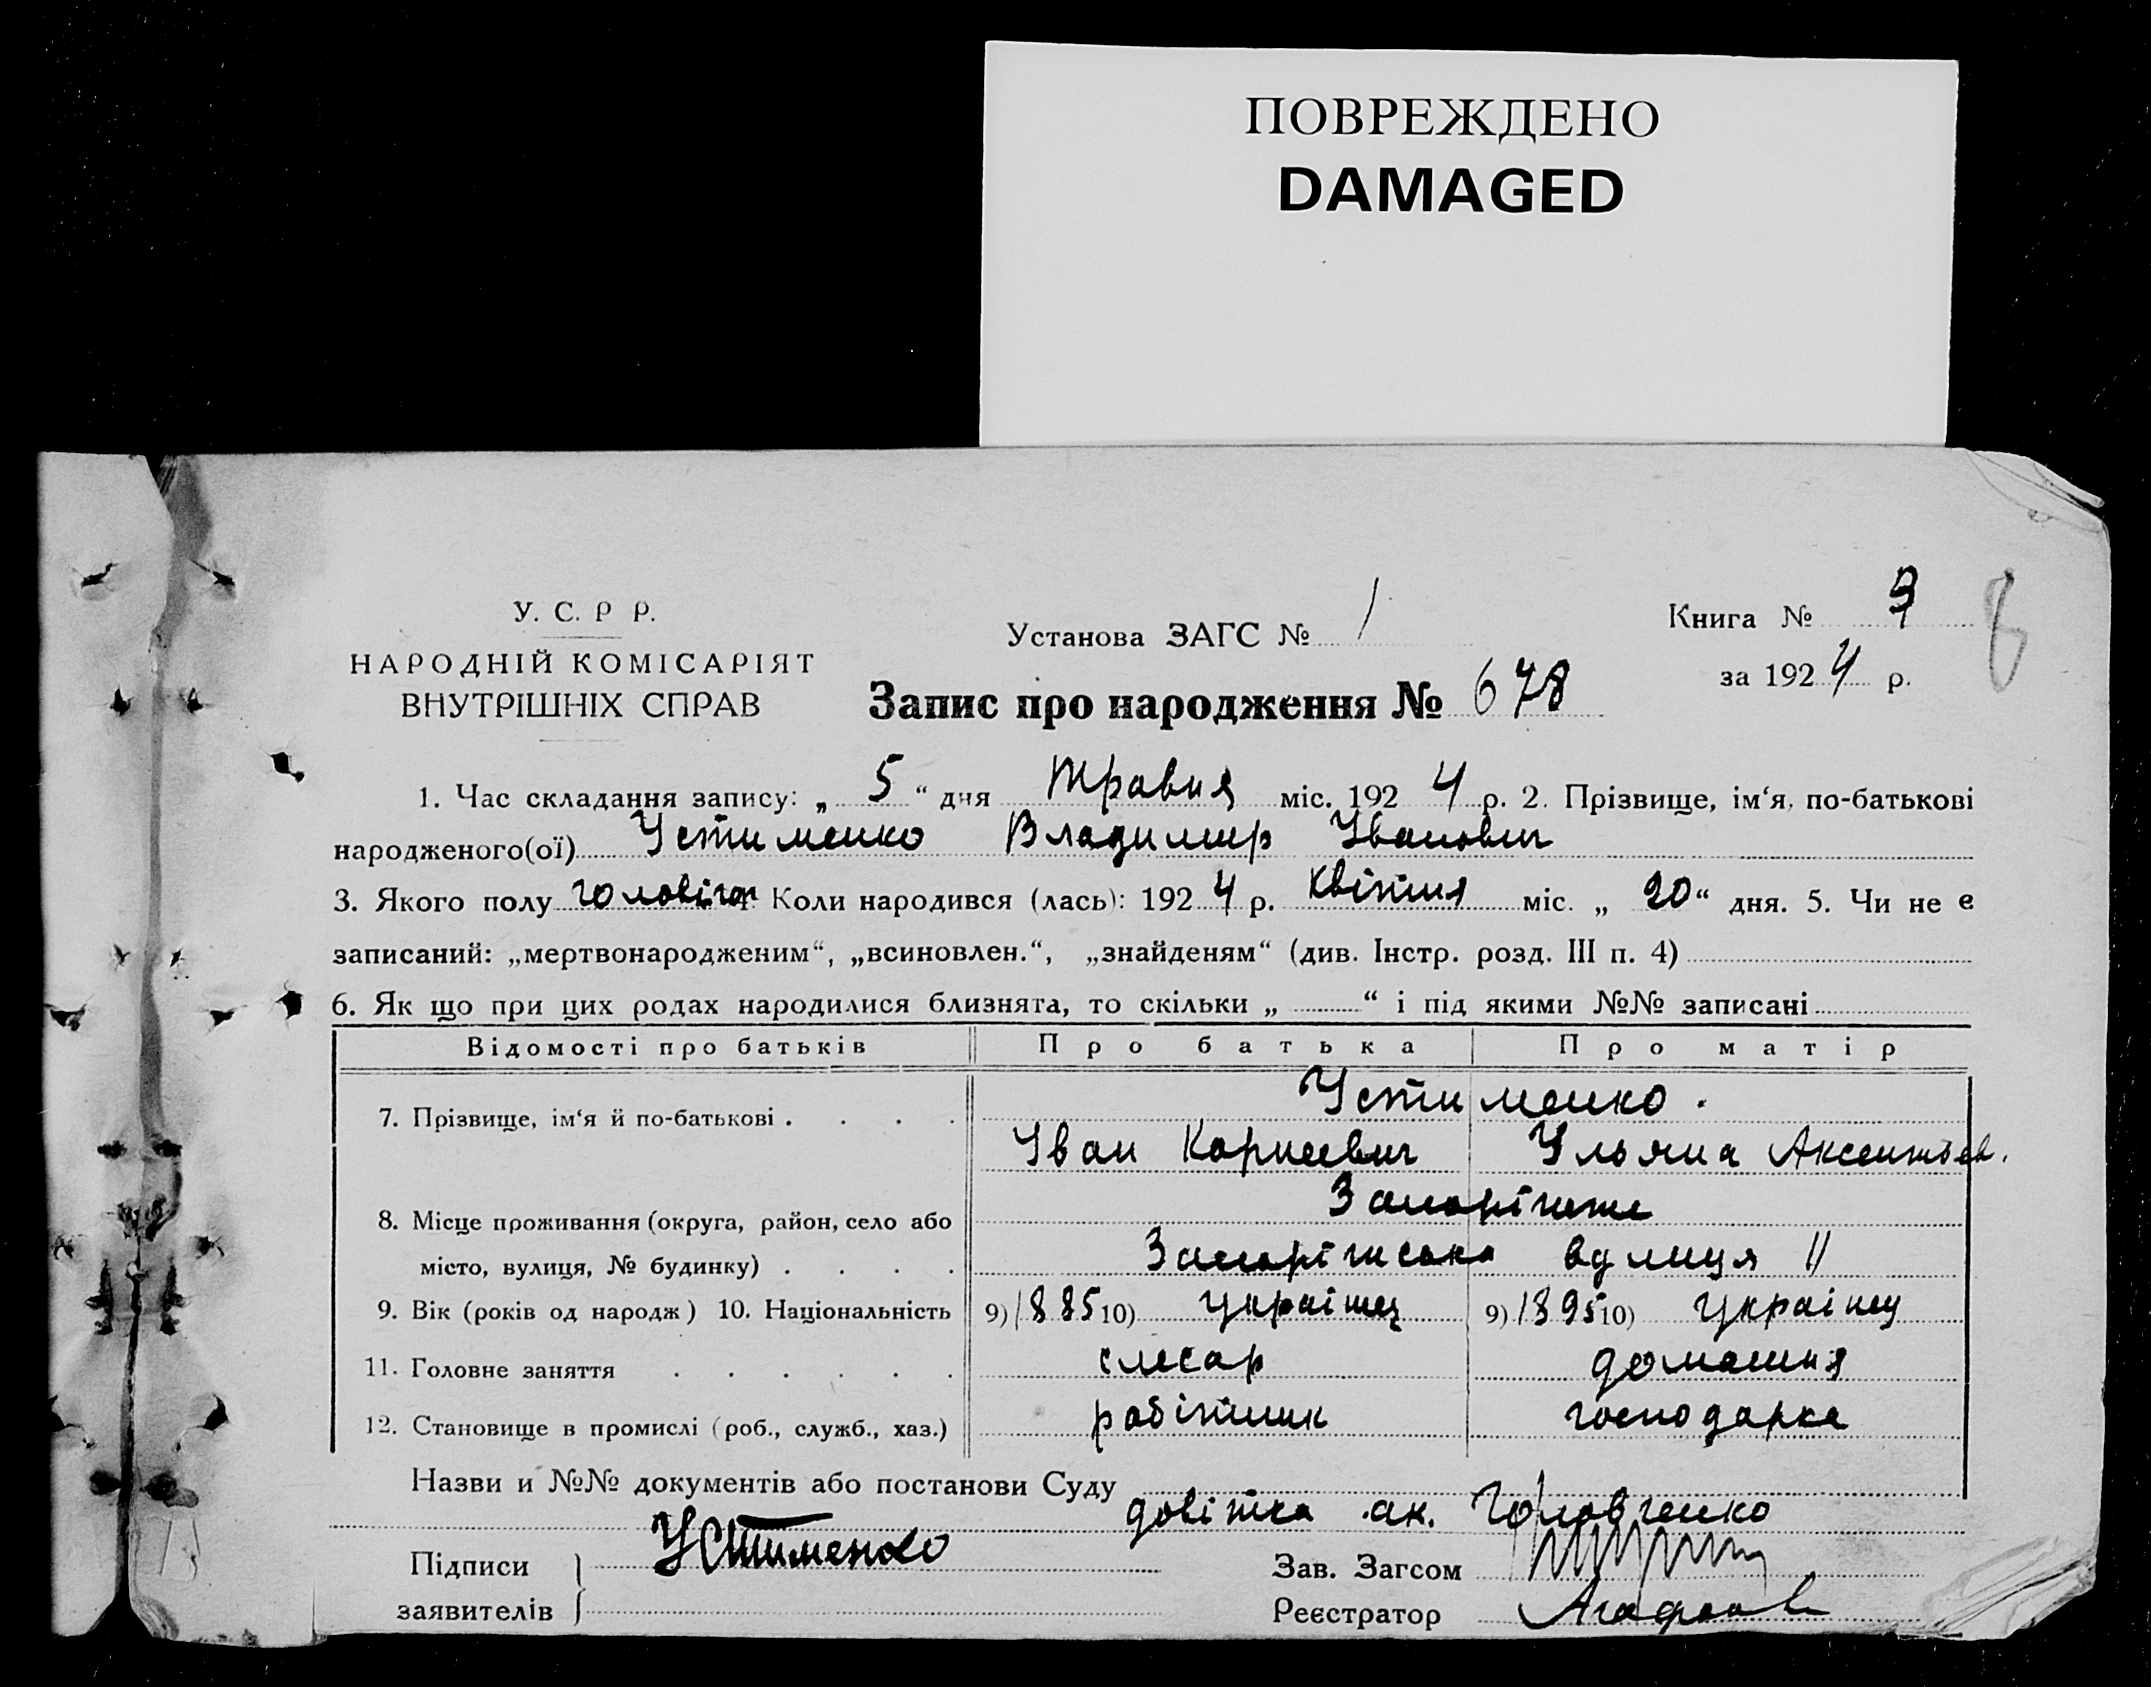 ПОВРЕЖДЕНО
DAMAGED
У. С. Р Р.
НАРОДНІЙ КОМІСАРІЯТ
ВНУТРІШНІХ СПРАВ
Установа ЗАГС № 1
Книга №
за 1924 р.
Запис про народження № 678
1. Час складання запису: „ 5 “ дня травня міс. 1924 р. 2. Прізвище, ім‘я, по-батькові
народженого(ої) Устименко Владимир Іванович
3. Якого полу чоловіч. 4. Коли народився (лась): 1924 р. квітня міс. „ 20 “ дня. 5. Чи не є
записаний: „мертвонародженим“, „всиновлен.“, „знайденям“ (див. Інстр. розд. III п. 4)
6. Як що при цих родах народилися близнята, то скільки „ “ і під якими №№ записані
Відомості про батьків Про батька Про матір
Устименко.
7. Прізвище, ім‘я й по-батькові
Іван Корнеевич Ульяна Аксентьев.
Запоріжже
8. Місце проживання (округа, район, село або
місто, вулиця, № будинку) Запоріжська вулиця 11
9. Вік (років од народж) 10. Національність 9) 1885 10) українец 9) 1895 10) українц
11. Головне заняття слесар домашня
12. Становище в промислі (роб., служб., хаз.) робітник господарка
Назви и №№ документів або постанови Суду
довітка ак. Головченко
Устименко
Підписи
заявителів
Зав. Загсом
Реєстратор Агафонов